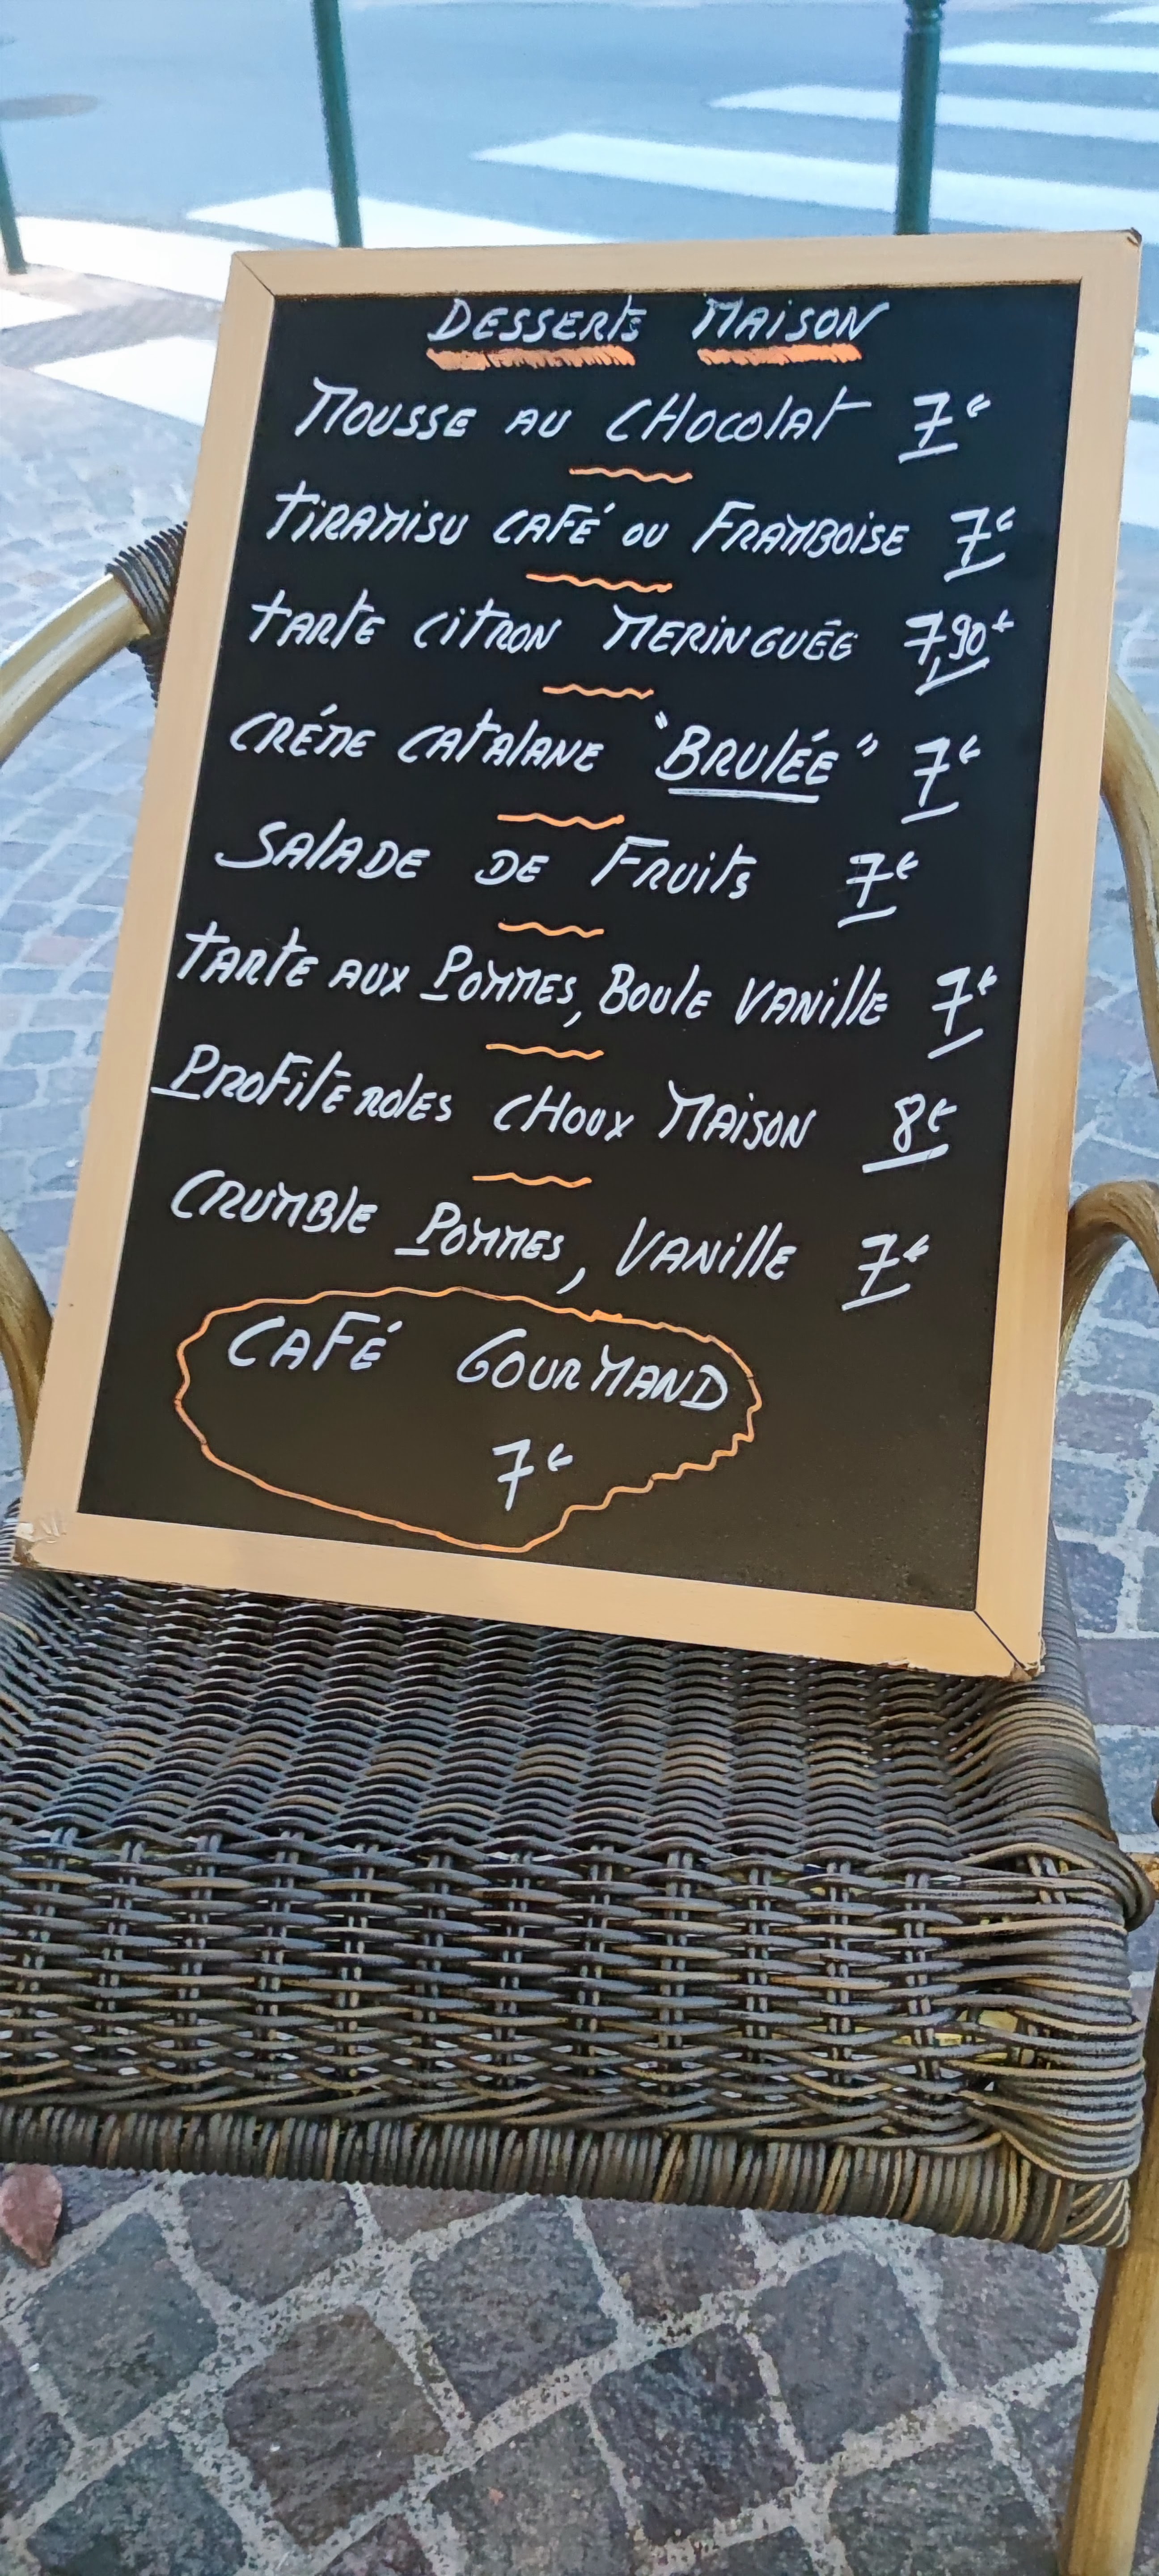 DESSERTS MAISON
MOUSSE AU CHOCOLAT 7€
TIRAMISU CAFÉ OU FRAMBOISE 7€
TARTE CITRON MERINGUÉE 7,90€
CRÉME CATALANE "BRULÉE" 7€
SALADE DE FRUITS 7€
TARTE AUX POMMES, BOULE VANILLE 7€
PROFITÉROLES CHOUX MAISON 8€
CRUMBLE POMMES, VANILLE 7€
CAFÉ GOURMAND
7€